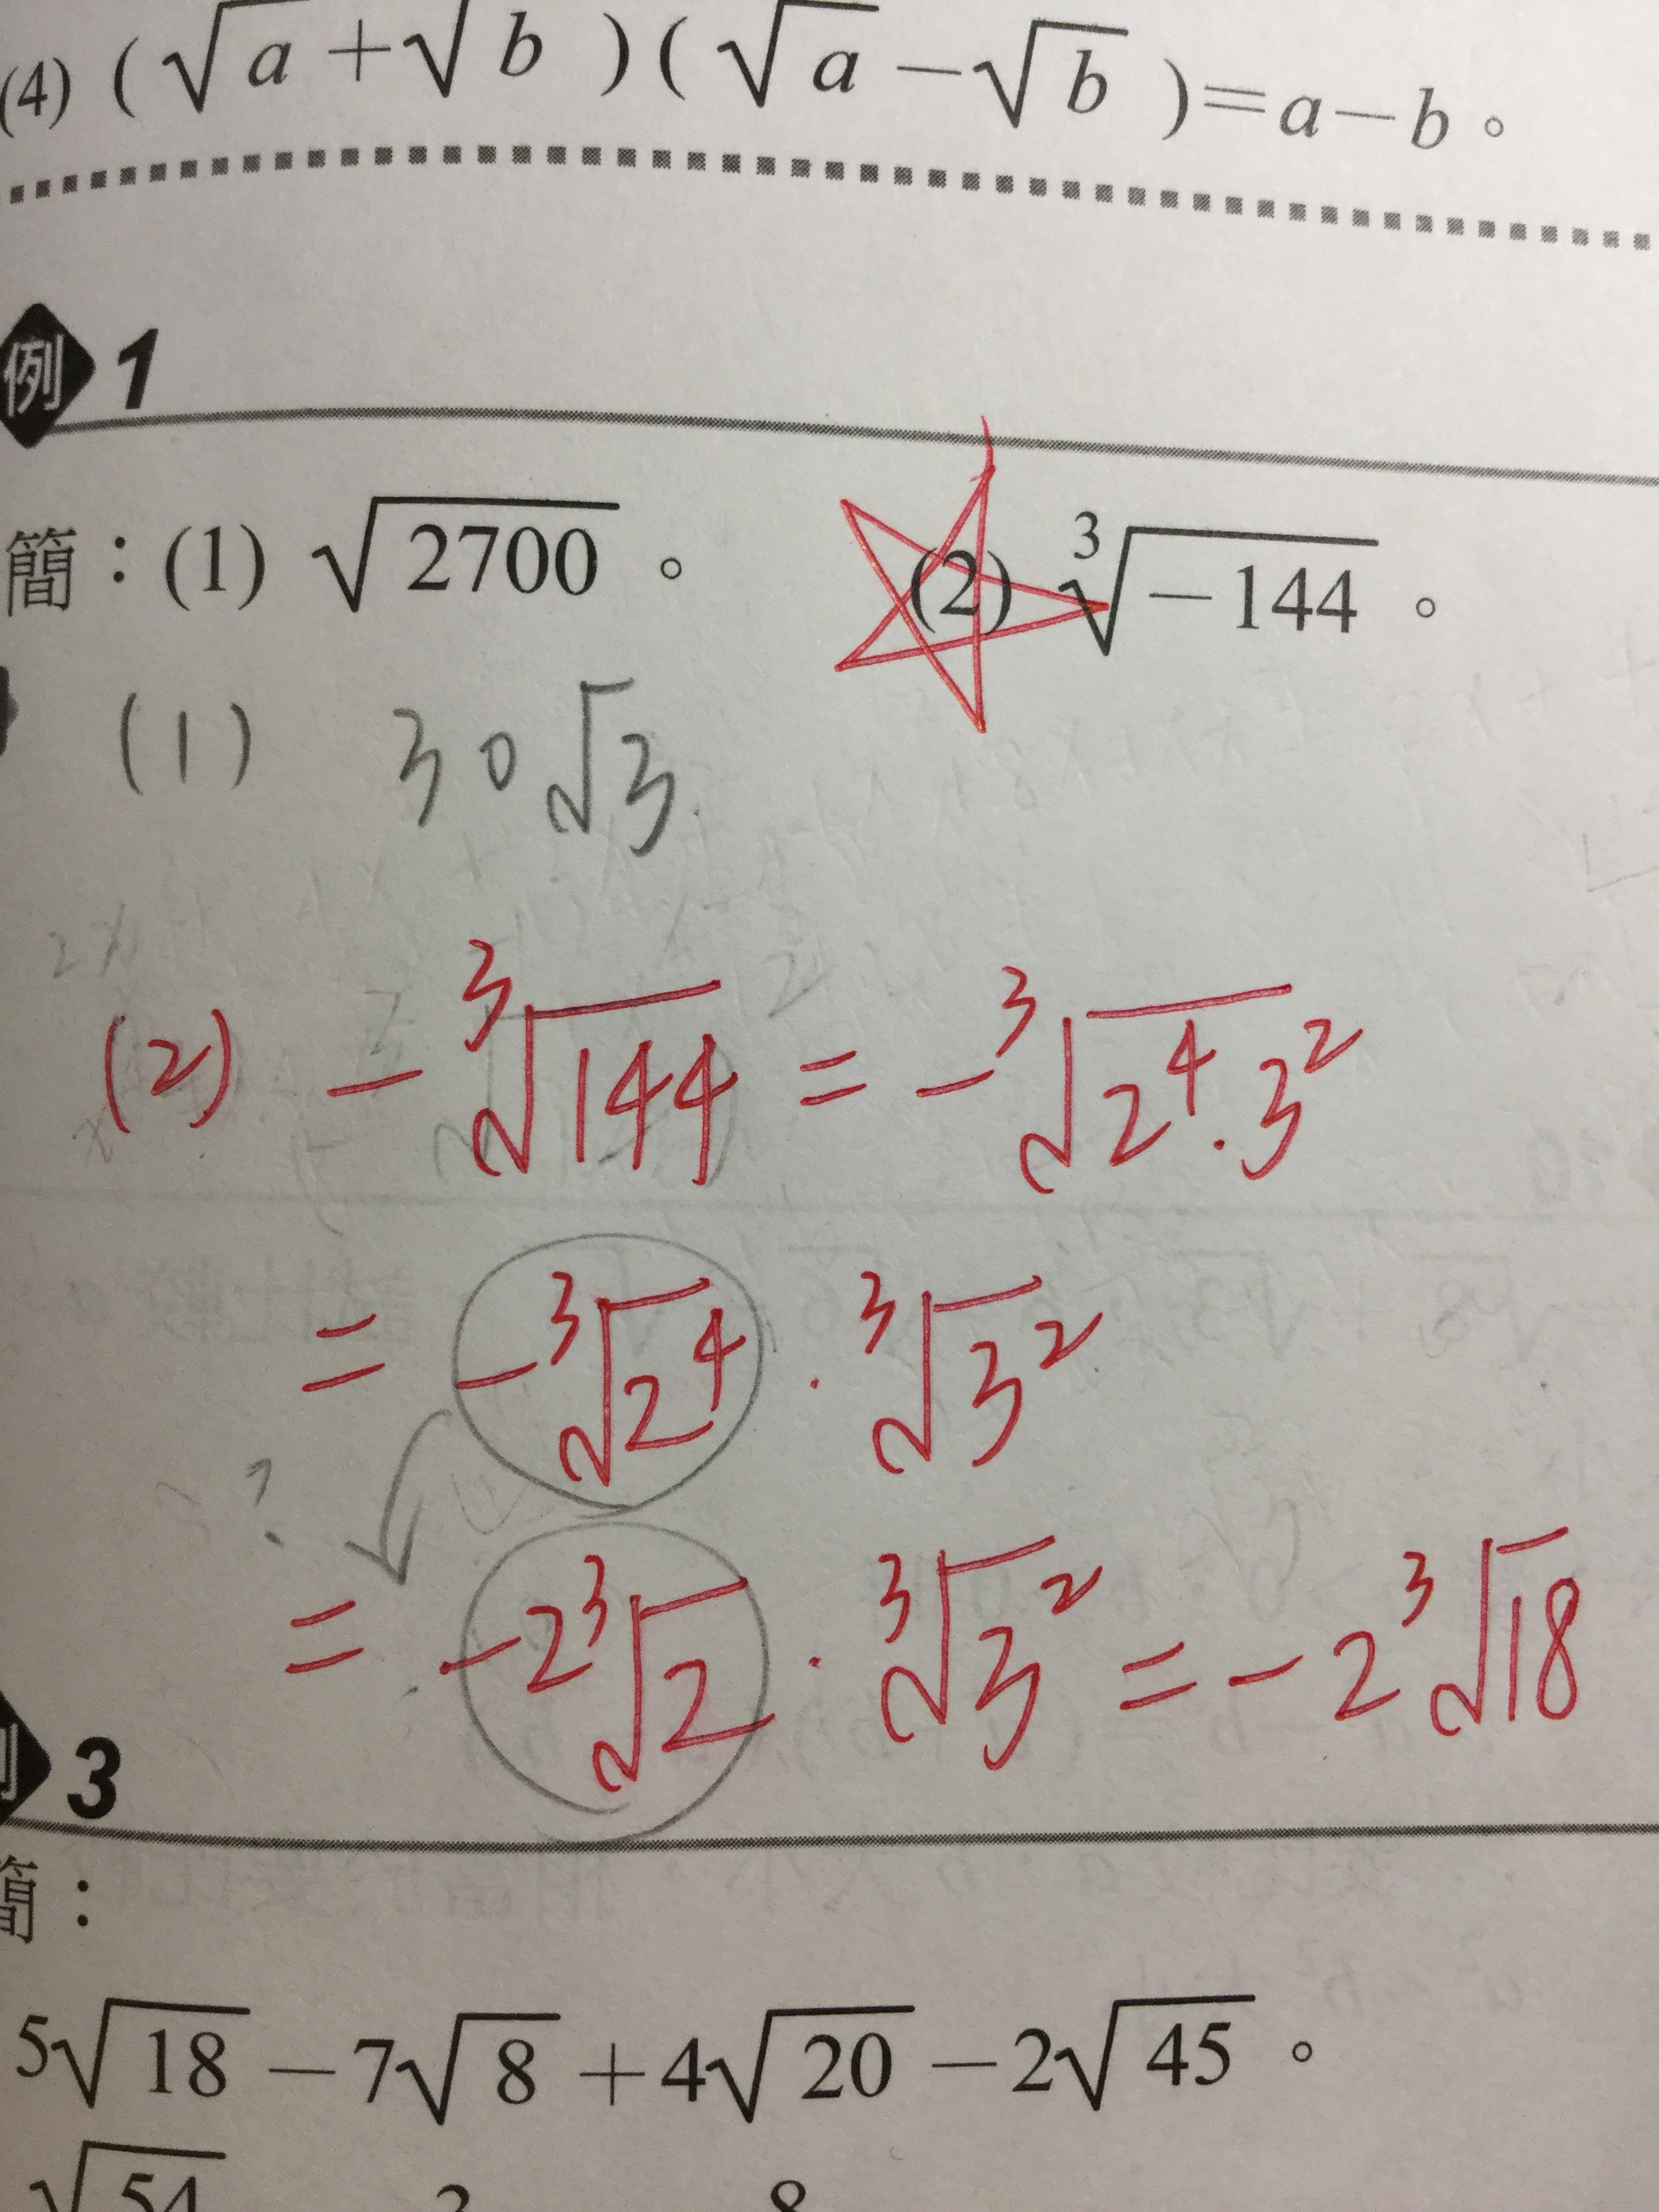 (4) (√a+√b)(√a−√b)=a−b。
例 1
簡：(1) √2700。 (2) ³√−144。
(1) 30√3
(2) −³√144 = −³√2⁴·3²
= −³√2⁴ · ³√3²
?
= −2³√2 · ³√3² = −2³√18
3
簡：
5√18−7√8+4√20−2√45。
√54